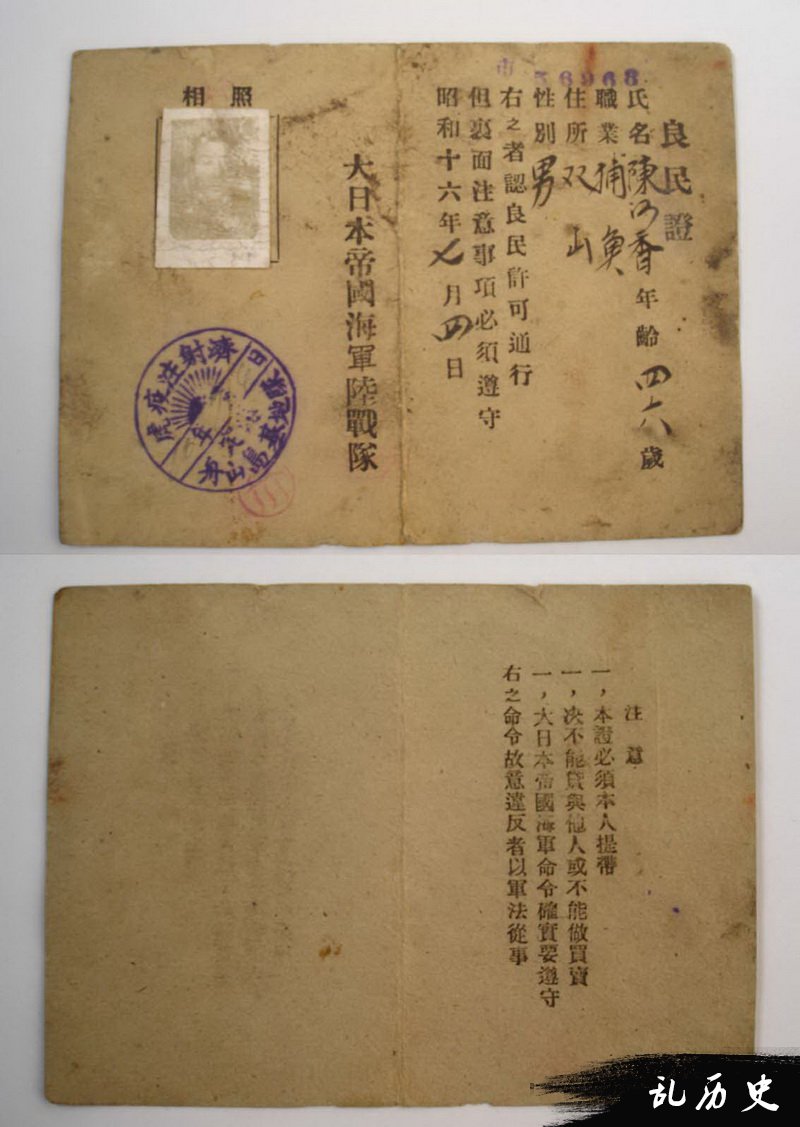 市 56968
良民證
氏名 陳 香 年齡 四六 歲
職業 捕魚
住所 双山
性別 男
右之者認良民許可通行
但裏面注意事項必須遵守
昭和十六年七月四日
大日本帝國海軍陸戰隊
照相
虎疫注射濟
日
年
舟山島基地隊
注意
一,本證必須本人提帶
一,决不能貸與他人或不能做買賣
一,大日本帝國海軍命令確實要遵守
右之命令故意違反者以軍法從事
乱历史